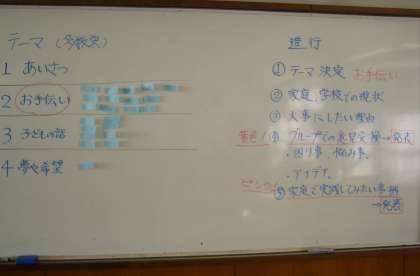 テーマ (多数決)
1 あいさつ
2 お手伝い
3 子どもの話
4 夢や希望
進行
① テーマ決定 お手伝い
② 家庭、学校での現状
③ 大事にしたい理由
黄色! ④ グループでの意見交換→発表
・困り事、悩み事、
・アイデア、
ピンク! ⑤ 家庭で実践してみたい事柄
→発表